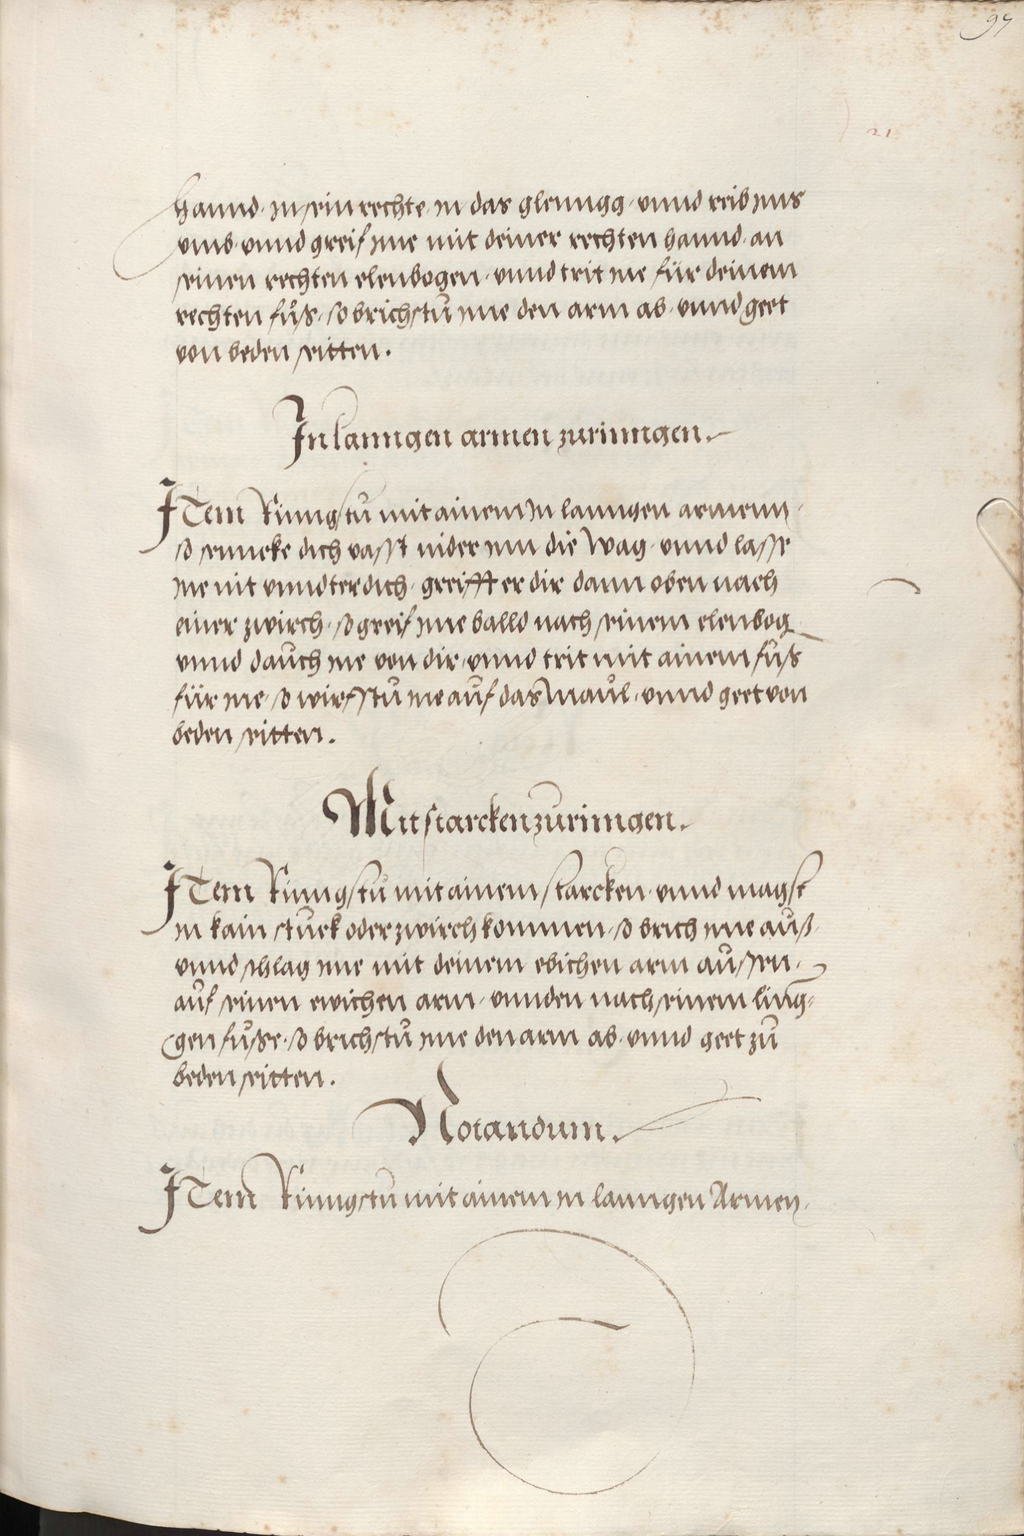 97
21
hannd. in sein rechte. in das glennngg. vnnd reib nns
vmb. vnnd greif ime mit deiner rechten hannd. an
seinen rechten elenbogen. vnnd trit ine für deinem
rechten fůß. so brichstů ime den arm ab. vnnd geet
von beden seitten.
In lanngen armen zu rinngen.
Item Rinngstů mit ainem in lanngen armenn.
so senncke dich vasst nider inn die Wag. vnnd lasse
ine nit vnndter dich. greifft er dir dann oben nach
einer zwirch. so greif ime balld nach seinem elenbog
vnnd dauch ine von dir. vnnd trit mit ainem fůß
für ine. so wirfstů ine auf das Maul. vnnd geet von
beden seitten.
Mit starcken zu rinngen.
Item Rinngstů mit ainem starcken. vnnd magst
in kain stuck oder zwirch kommen. so brich ime auß.
vnnd schlag ime mit deinem ebichen arm aussen.
auf seinen ewichen arm. vnnden nach seinem ling-
gen fůße. so brichstů ime den arm ab. vnnd geet zů
beden seitten.
Notandum.
Item Rinngstů mit ainem in lanngen Armen.